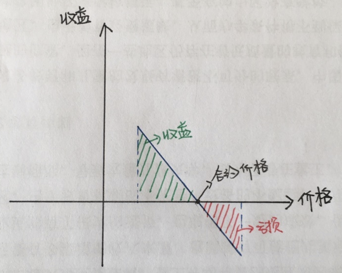 收益
收益
合约价格
价格
亏损